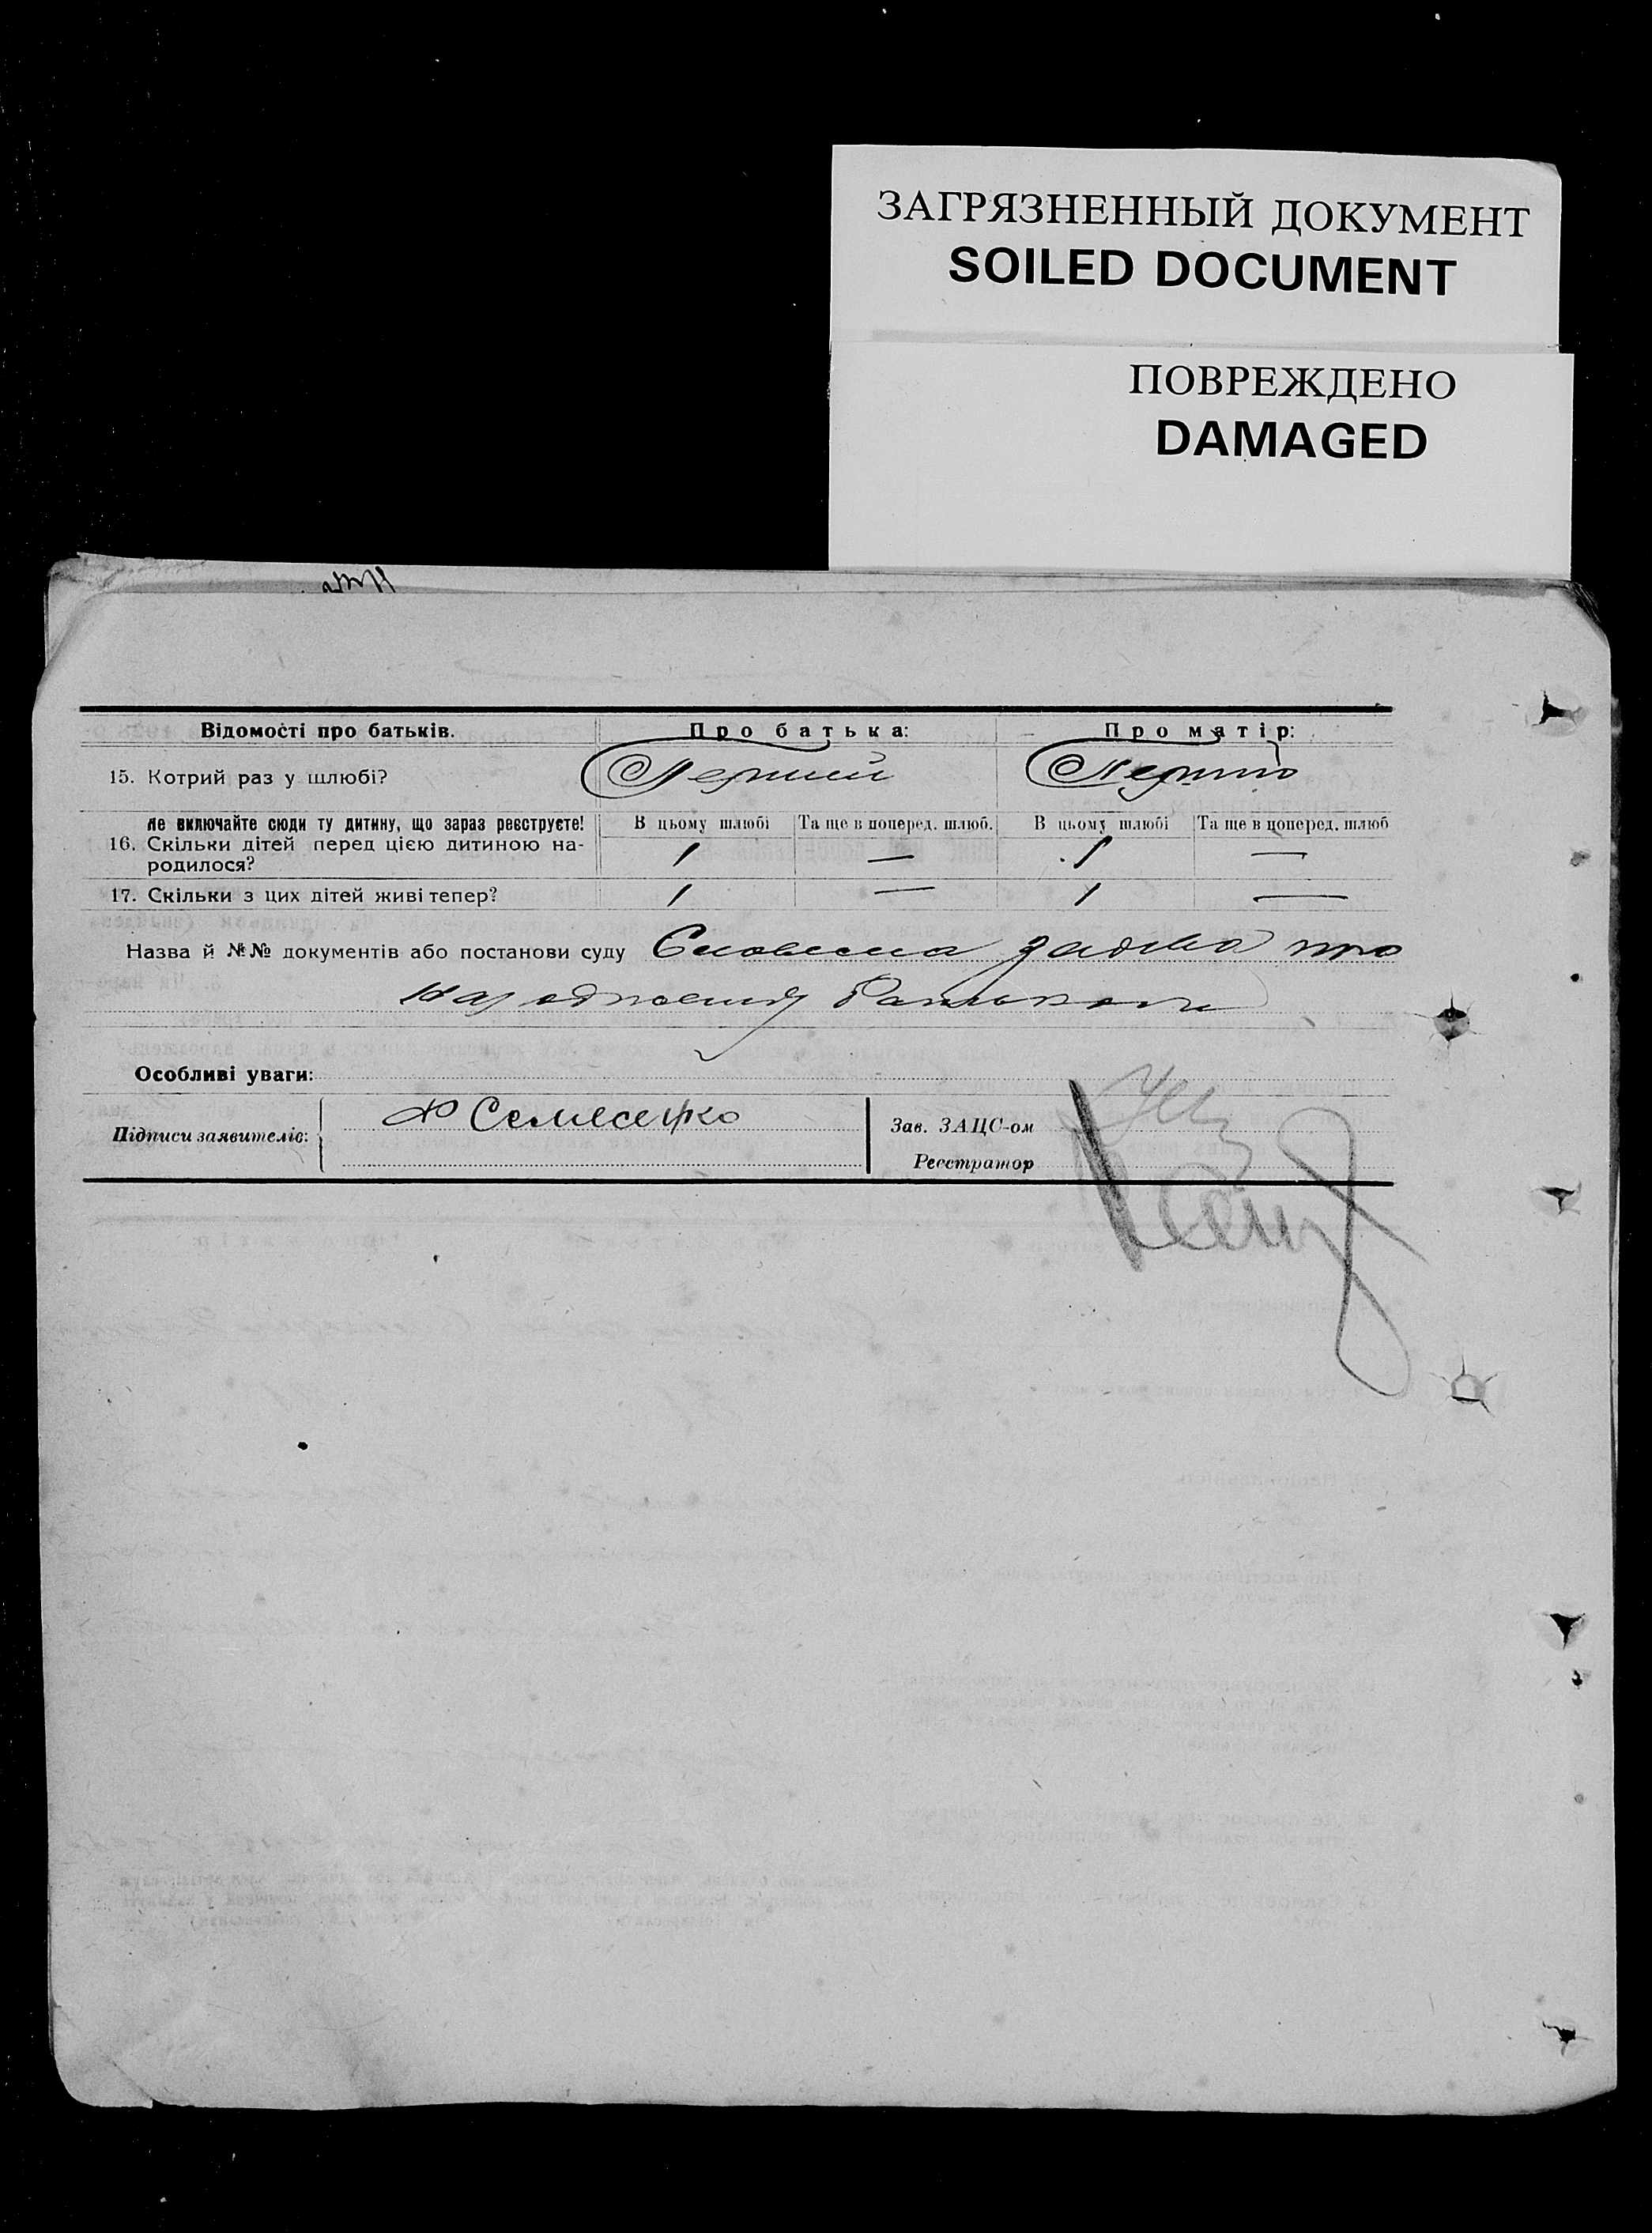 ЗАГРЯЗНЕННЫЙ ДОКУМЕНТ
SOILED DOCUMENT
ПОВРЕЖДЕНО
DAMAGED
Відомості про батьків. Про батька: Про матір:
15. Котрий раз у шлюбі? Перший Перший
Не включайте сюди ту дитину, що зараз реєструєте! В цьому шлюбі Та ще в поперед. шлюб. В цьому шлюбі Та ще в поперед. шлюб
16. Скільки дітей перед цією дитиною на- 1 — 1 —
родилося?
17. Скільки з цих дітей живі тепер? 1 — 1 —
Назва й №№ документів або постанови суду Словесна заява про
народження
Особливі уваги:
Підписи заявителів: Семесенко Зав. ЗАЦС-ом
Реєстратор